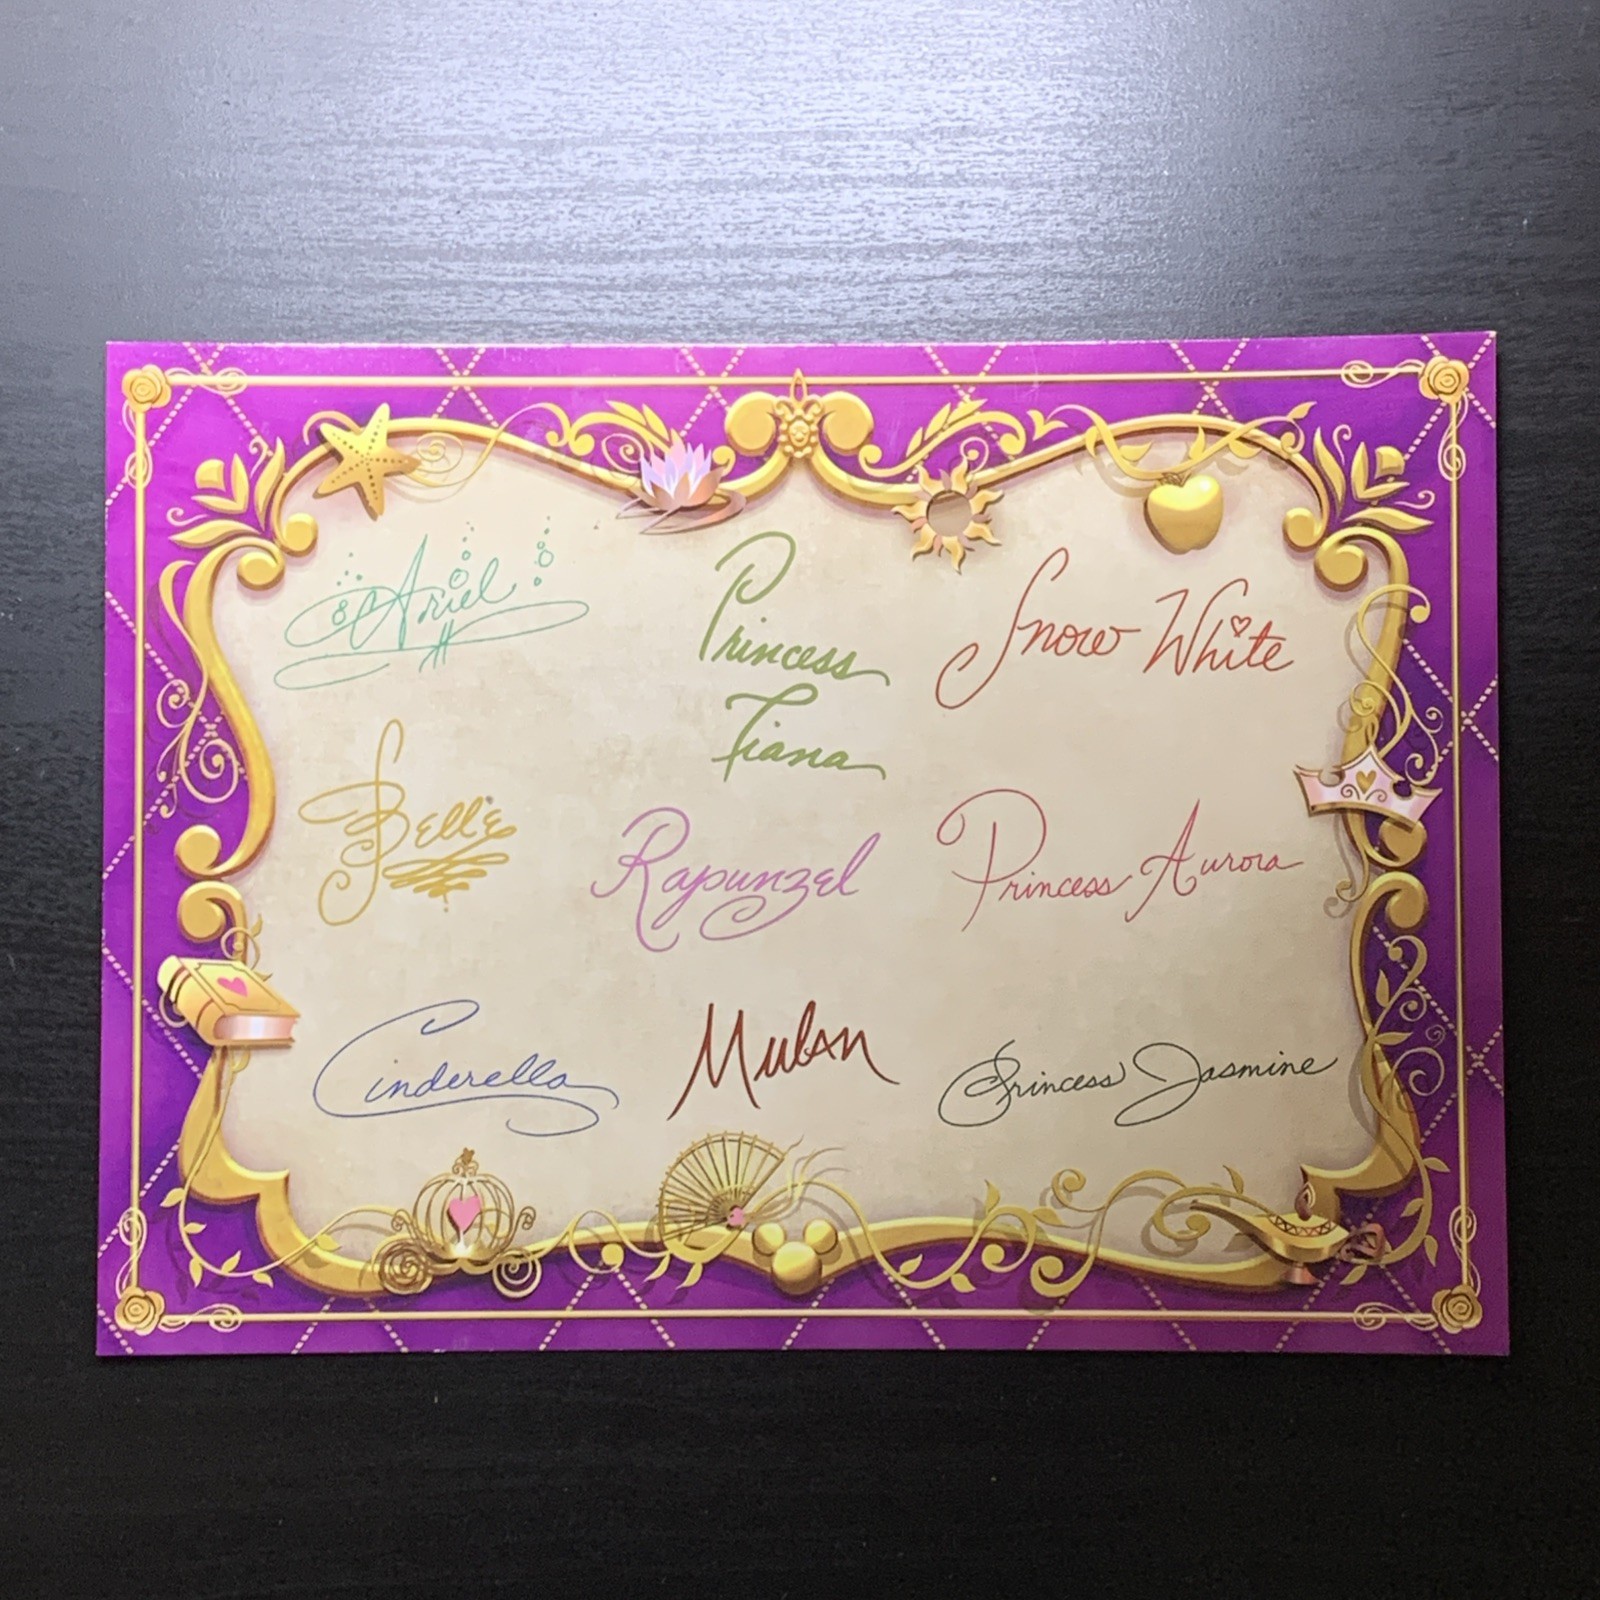 Ariel
Princess
Tiana
Snow White
Belle
Rapunzel
Princess Aurora
Cinderella
Mulan
Princess Jasmine